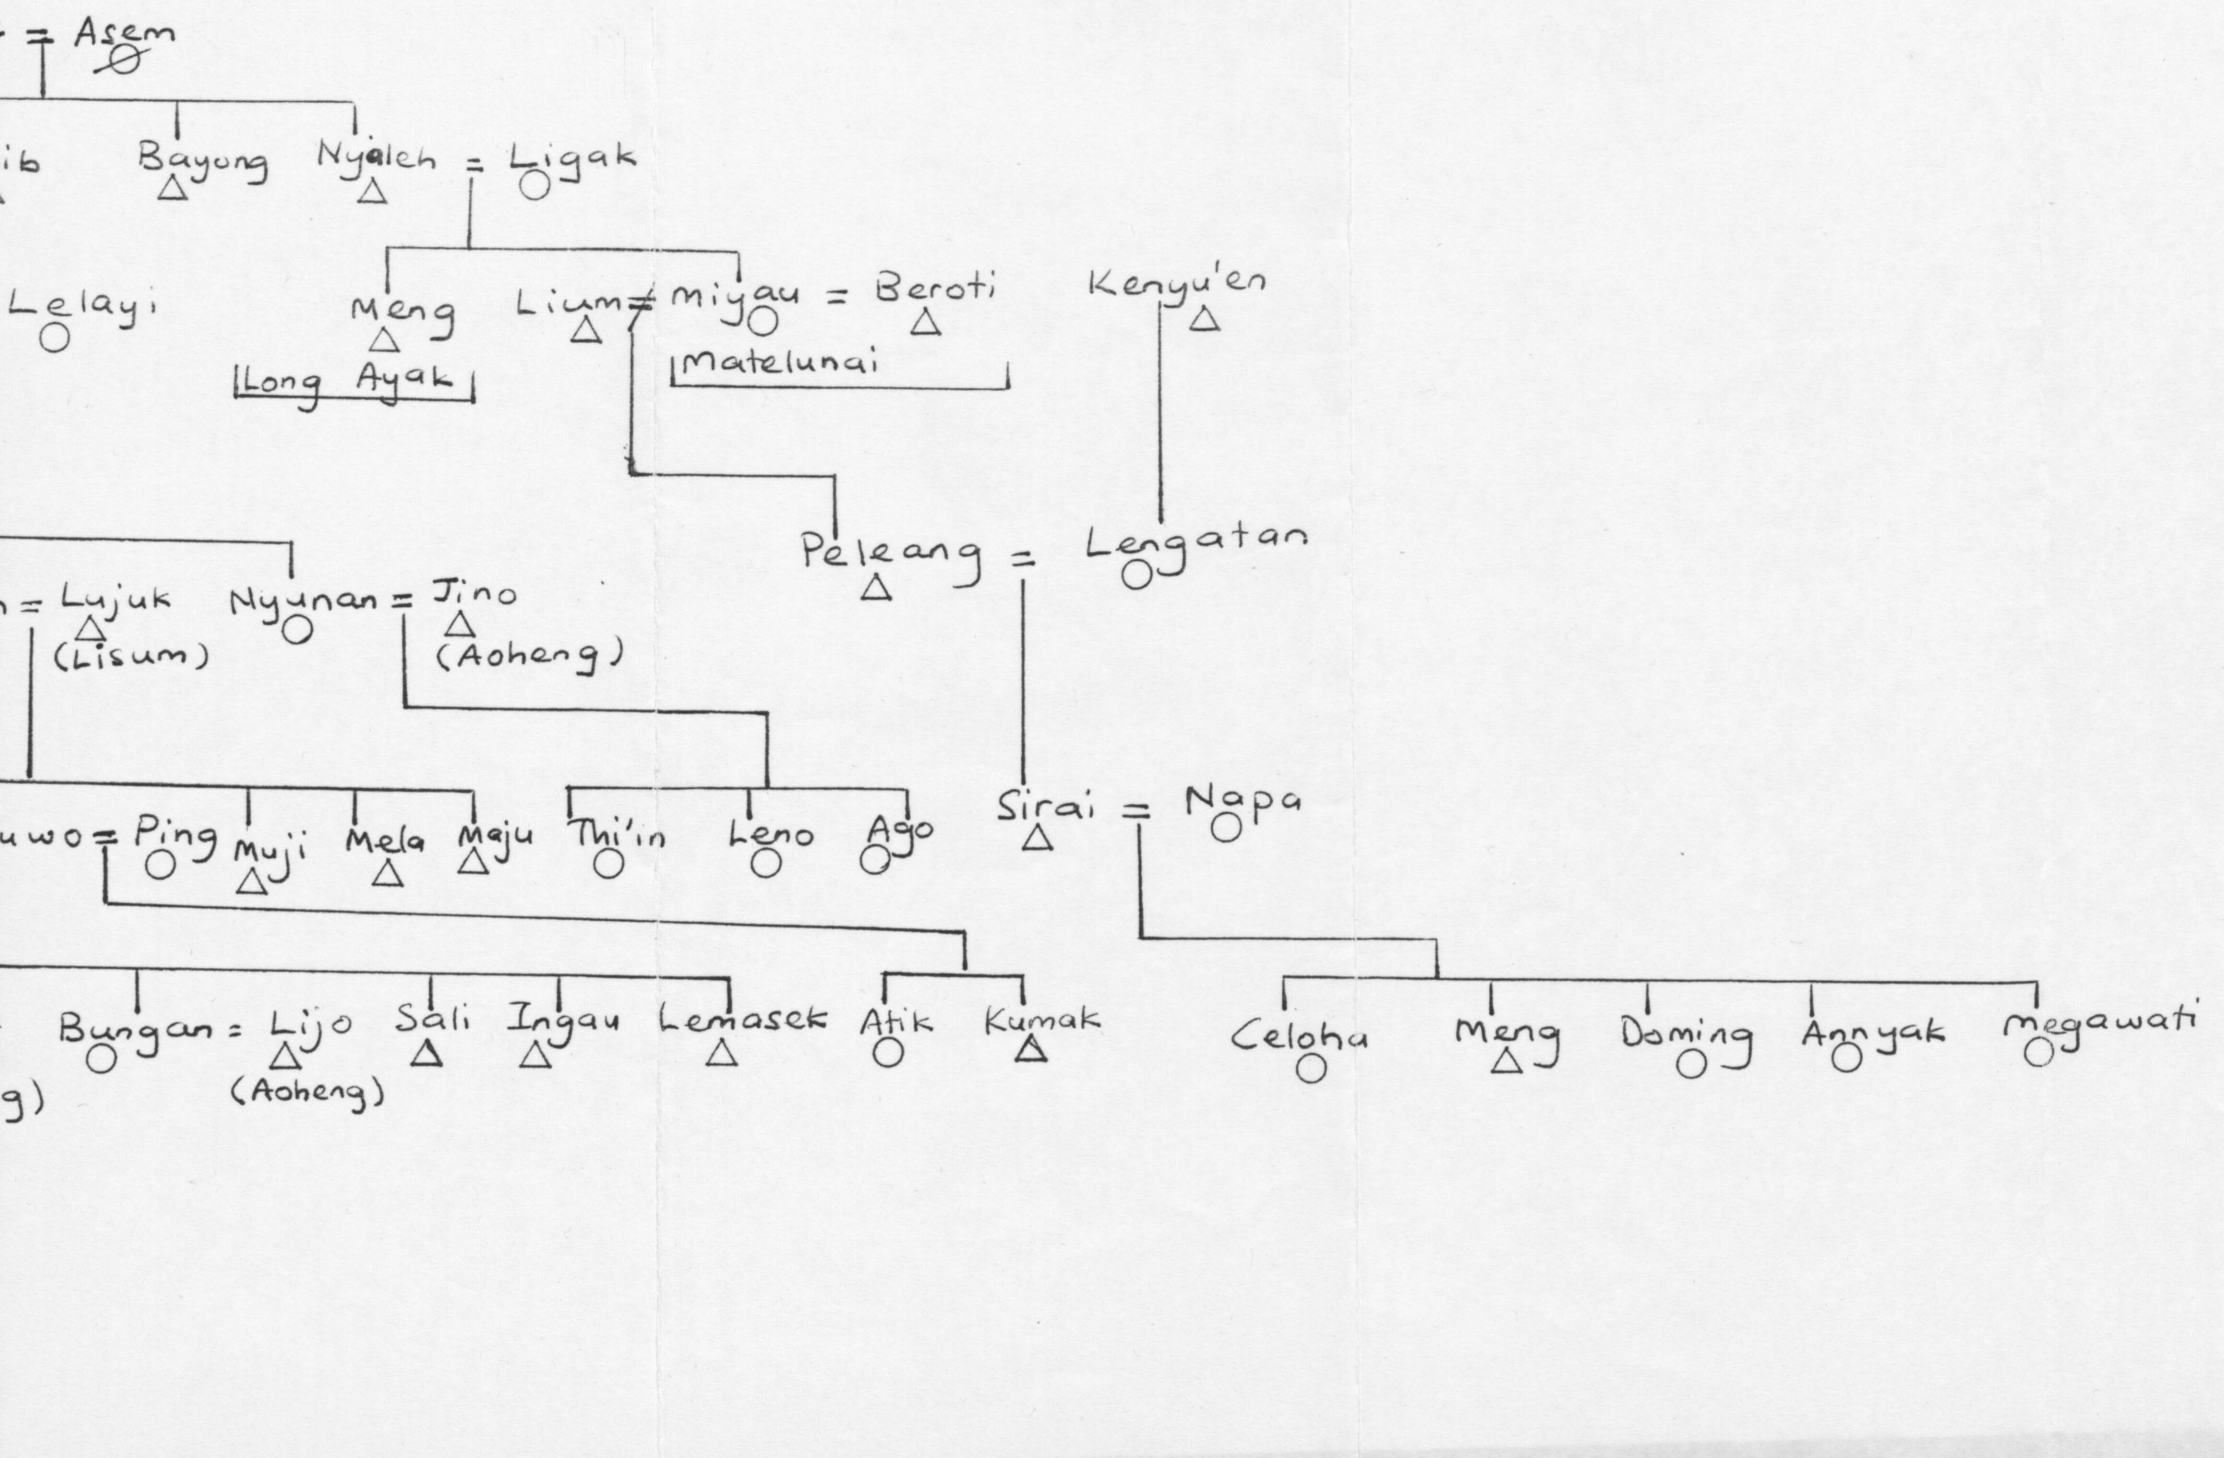 = Asem
ib Bayung Nyaleh = Ligak
Lelayi Meng Lium ≠ Miyau = Beroti Kenyu'en
Long Ayak Matelunai
Peleang = Lengatan
= Lujuk Nyunan = Jino
(Lisum) (Aoheng)
uwo = Ping Muji Mela Maju Thi'in Leno Ago Sirai = Napa
Bungan = Lijo Sali Ingau Lemasek Atik Kumak Celoha Meng Doming Annyak Megawati
g) (Aoheng)